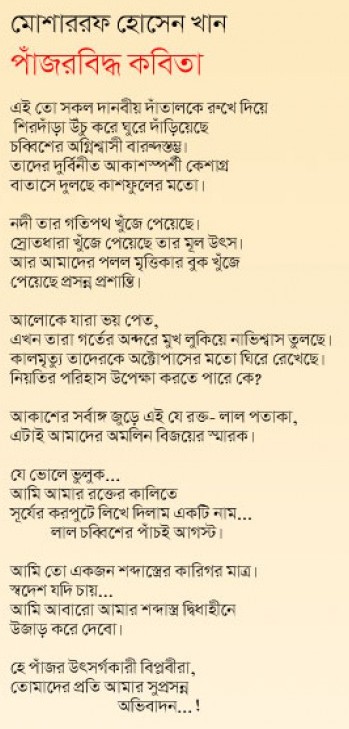 মোশাররফ হোসেন খান
পাঁজরবিদ্ধ কবিতা
এই তো সকল দানবীয় দাঁতালকে রুখে দিয়ে
শিরদাঁড়া উঁচু করে ঘুরে দাঁড়িয়েছে
চব্বিশের অগ্নিশ্বাসী বারুদস্তম্ভ।
তাদের দুর্বিনীত আকাশস্পর্শী কেশাগ্র
বাতাসে দুলছে কাশফুলের মতো।
নদী তার গতিপথ খুঁজে পেয়েছে।
স্রোতধারা খুঁজে পেয়েছে তার মূল উৎস।
আর আমাদের পলল মৃত্তিকার বুক খুঁজে
পেয়েছে প্রসন্ন প্রশান্তি।
আলোকে যারা ভয় পেত,
এখন তারা গর্তের অন্দরে মুখ লুকিয়ে নাভিশ্বাস তুলছে।
কালমৃত্যু তাদেরকে অক্টোপাসের মতো ঘিরে রেখেছে।
নিয়তির পরিহাস উপেক্ষা করতে পারে কে?
আকাশের সর্বাঙ্গ জুড়ে এই যে রক্ত- লাল পতাকা,
এটাই আমাদের অমলিন বিজয়ের স্মারক।
যে ভোলে ভুলুক...
আমি আমার রক্তের কালিতে
সূর্যের করপুটে লিখে দিলাম একটি নাম...
লাল চব্বিশের পাঁচই আগস্ট।
আমি তো একজন শব্দাস্ত্রের কারিগর মাত্র।
স্বদেশ যদি চায়...
আমি আবারো আমার শব্দাস্ত্র দ্বিধাহীনে
উজাড় করে দেবো।
হে পাঁজর উৎসর্গকারী বিপ্লবীরা,
তোমাদের প্রতি আমার সুপ্রসন্ন
অভিবাদন...!